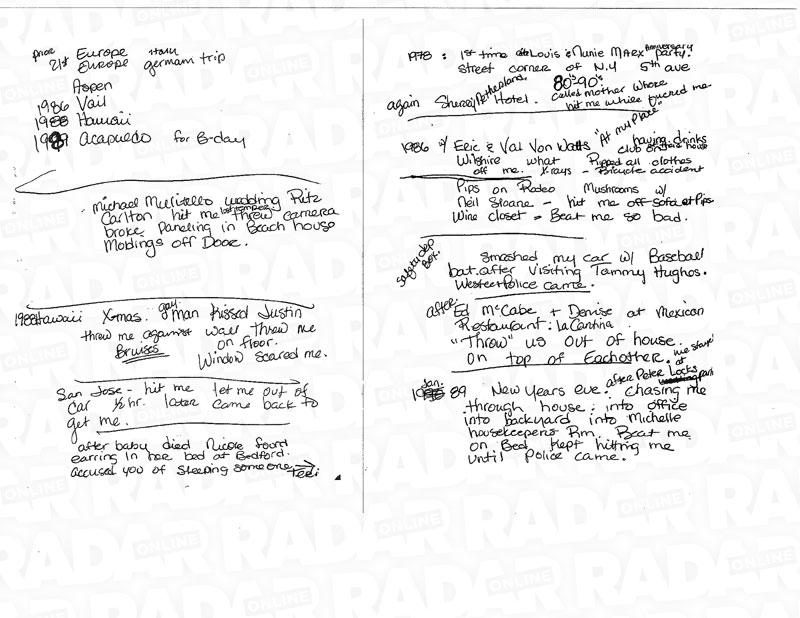 prior Europe
21st Europe german trip
Aspen
1986 Vail
1988 Hawaii
1989 Acapulco for B-day
Michael Mulitello wedding Ritz
Carlton hit me threw camera
broke Paneling in Beach house
Moldings off Door.
1988 Hawaii X-mas. gay man kissed Justin
threw me against wall threw me
Bruises on floor.
Window scared me.
San Jose - hit me let me out of
car 1/2 hr. later came back to
get me.
after baby died Nicole found
earring in her bed at Bedford.
accused you of sleeping someone → Teri
1978: 1st time Louis & Nunie MARX Anniversary party.
street corner of N.Y 5th ave
80's-90's.
again Sherry Netherland Hotel. called mother whore
hit me while he fucked me
1986 w/ Eric & Val Von Watts "At my Place"
having drinks
Wilshire what Ripped all clothes
off me. X-rays - Bicycle accident
Pips on Rodeo Mushrooms w/
Neil Sloane - hit me off sofa at Pips
Wine closet - Beat me so bad.
safety dep box.
smashed my car w/ Baseball
bat. after visiting Tammy Hughes.
Westec Police came.
after: Ed McCabe + Denise at Mexican
Restaurant: La Cantina
"Throw" us out of house.
on top of Eachother.
Jan. 89 New Years eve. after Peter Locks
chasing me
through house: into office
into backyard into Michelle
housekeepers Rm. Beat me
on Bed kept hitting me
until Police came.
RADAR ONLINE